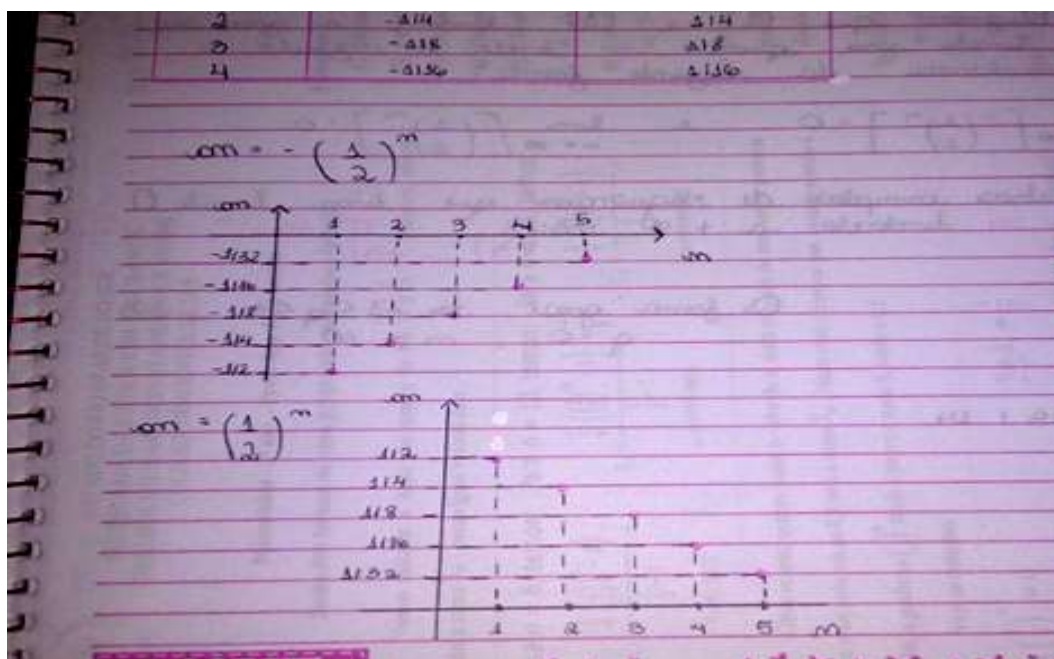 2 -1/4 1/4
3 -1/8 1/8
4 -1/16 1/16
an = - (1/2)^n
an
1 2 3 4 5
n
-1/32
-1/16
-1/8
-1/4
-1/2
an = (1/2)^n
an
1/2
1/4
1/8
1/16
1/32
1 2 3 4 5 n